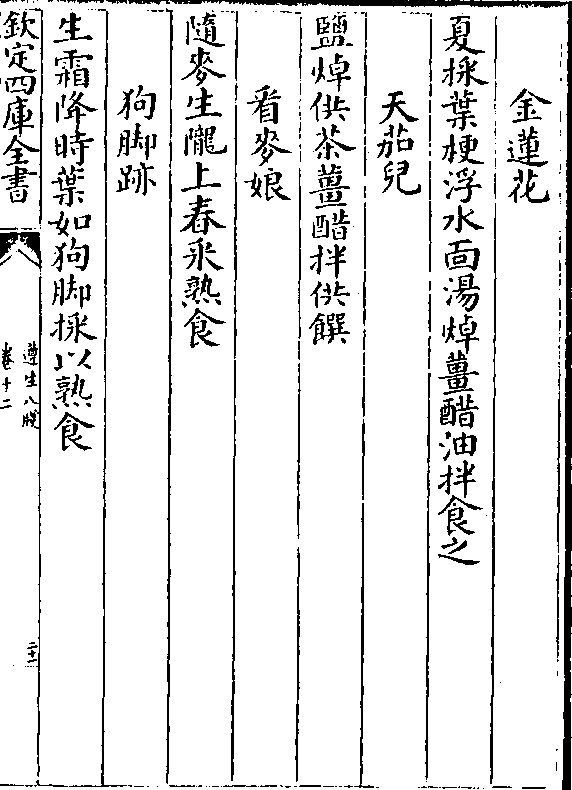 金蓮花
夏採葉梗浮水面湯焯薑醋油拌食之
天茄兒
鹽焯供茶薑醋拌供饌
看麥娘
隨麥生隴上春采熟食
狗脚跡
生霜降時葉如狗脚採以熟食
欽定四庫全書
遵生八牋
卷十二
二十二